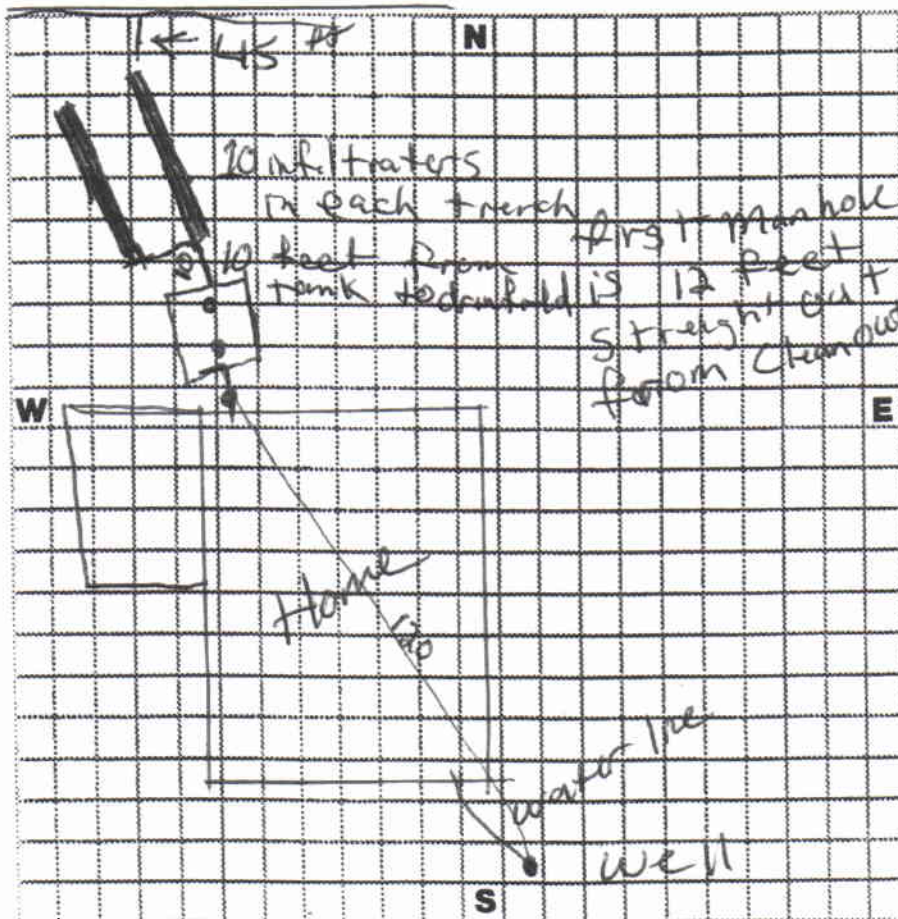 45 ft
N
10 infiltraters
in each trench
10 feet from
tank to
10
first manhole
is 12 feet
streight out
from Cleanout
W
E
Home
120
water line
well
S